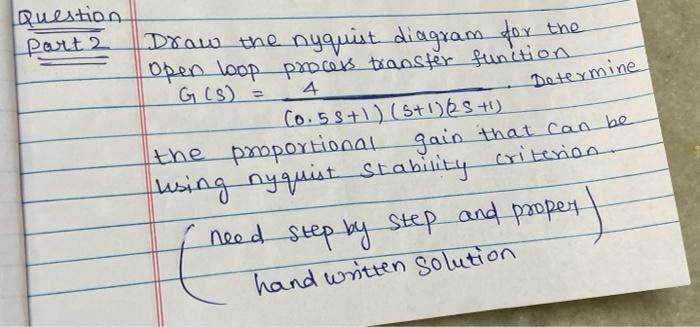 Question
Part 2 Draw the nyquist diagram for the
Open loop process transfer function
G(S) = 4 / (0.5S+1)(S+1)(2S+1) . Determine
the proportional gain that can be
using nyquist stability criterion.
(need step by step and proper
handwritten solution)